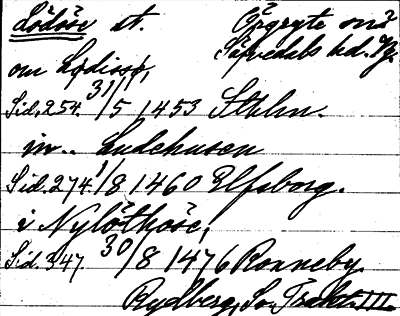 Lödöse st. Örgryte snö
Sävedals hd. Vg.
om Lodisse,
Sid. 254. 31/5 1453 Sthlm.
in.. Ludehusen
Sid. 274. 1/8 1460 Elfsborg.
i Nylöthose,
Sid. 347. 30/8 1476 Ronneby
Rydberg, Sv. Trakt. III